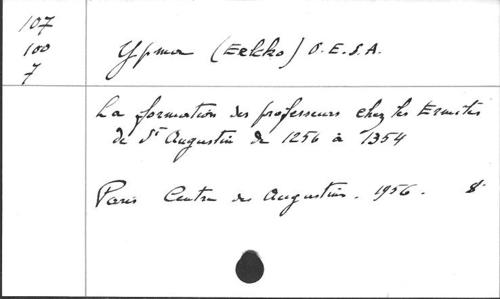 107
100
7
Ypma (Eelko) O.E.S.A.
La formation des professeurs chez les Ermites
de St Augustin de 1256 à 1354
Paris Centre des Augustins. 1956. 8°